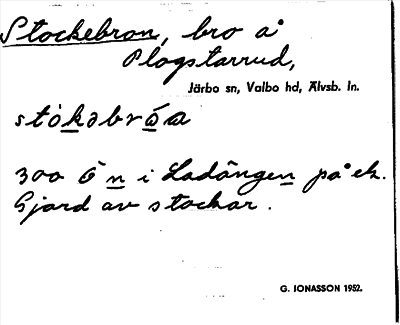 Stockebron, bro å
Plogstarrud,
Järbo sn, Valbo hd, Älvsb. ln.
stòkəbróa
300 Ö n i Ladängen på ek.
Gjord av stockar.
G. IONASSON 1952.